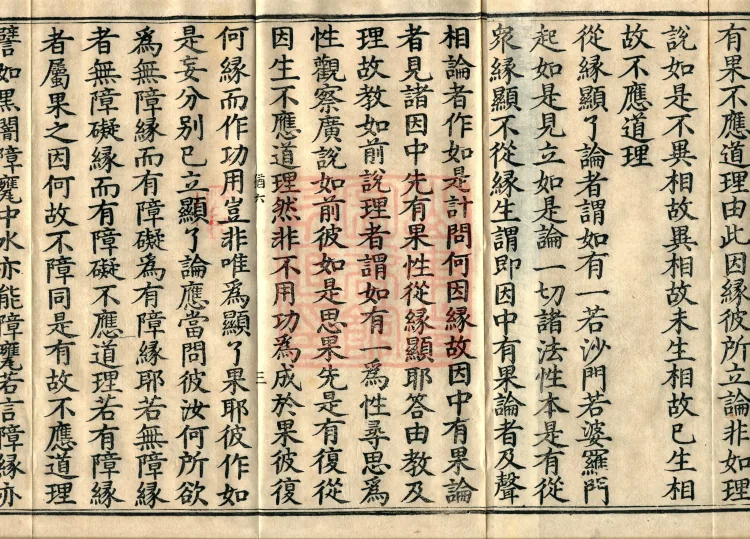 有果不應道理由此因緣彼所立論非如理
說如是不異相故異相故未生相故已生相
故不應道理
從緣顯了論者謂如有一若沙門若婆羅門
起如是見立如是論一切諸法性本是有從
衆緣顯不從緣生謂即因中有果論者及聲
相論者作如是計問何因緣故因中有果論
者見諸因中先有果性從緣顯耶答由教及
理故教如前說理者謂如有一爲性尋思爲
性觀察廣說如前彼如是思果先是有復從
因生不應道理然非不用功爲成於果彼復
三
何緣而作功用豈非唯爲顯了果耶彼作如
是妄分別已立顯了論應當問彼汝何所欲
爲無障緣而有障礙爲有障緣耶若無障緣
者無障礙緣而有障礙不應道理若有障緣
者屬果之因何故不障同是有故不應道理
譬如黑闇障甕中水亦能障甕若言障緣亦